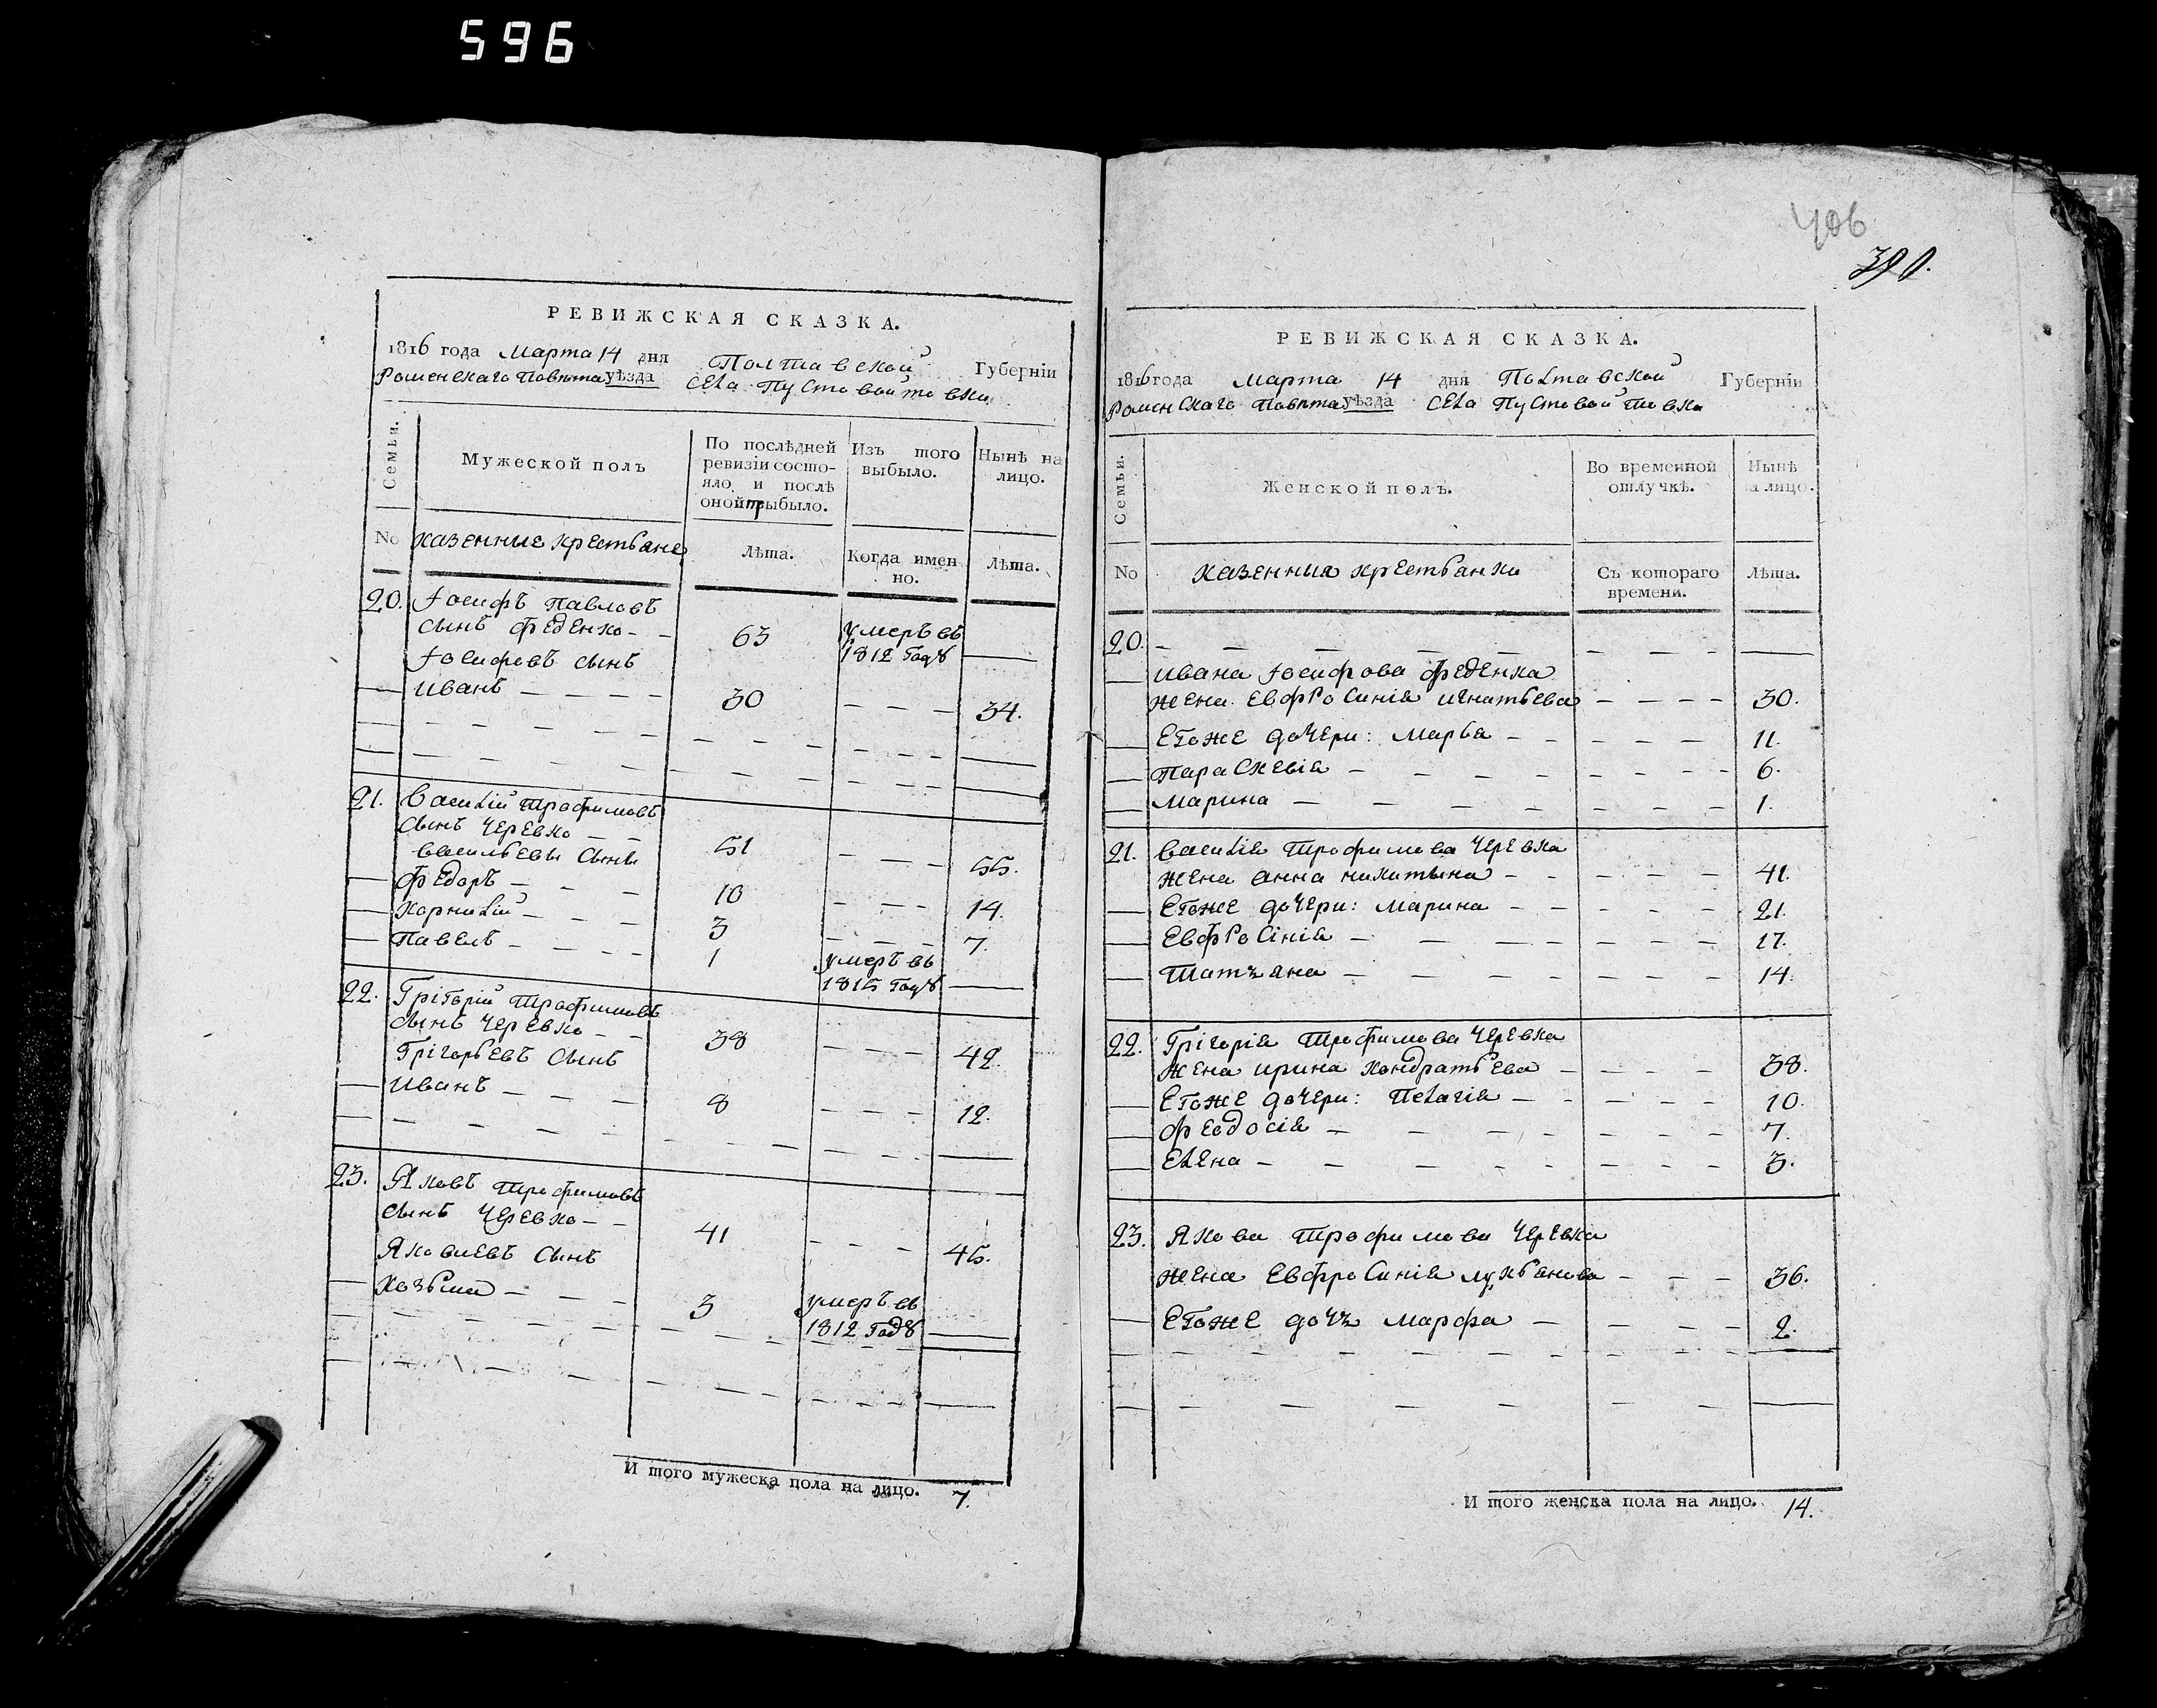 596
406
390.
РЕВИЖСКАЯ СКАЗКА.
1816 года Марта 14 дня Полтавской Губерніи
Роменскаго Повѣта уѣзда села Пустовойтовки
Семьи.
Мужеской полъ
По послѣдней ревизіи состо-
яло и послѣ
оной прыбыло.
Изъ того
выбыло.
Нынѣ на
лицо.
No казенные крестьяне
Лѣта.
Когда имен
но.
Лѣта.
20. Іосифъ Павловъ
сынъ Феденко - - 63 умеръ въ
1812 Году
Іосифовъ сынъ
Иванъ - - - - 30 - - - 34.
21. Василій Трофимовъ
сынъ Черевко - - 51 - - - 55.
васильевы сыны
Федоръ - - - 10 - - - 14.
Корнилій - - - 3 - - - 7.
Павелъ - - - - 1 умеръ въ
1815 Году
22. Грігорій Трофимовъ
сынъ Черевко - - 38 - - - 42.
Грігорьевъ сынъ
Иванъ - - - - 8 - - - 12.
23. Яковъ Трофимовъ
сынъ Черевко - - 41 - - - 45.
Яковлевъ сынъ
Козьма - - - 3 умеръ въ
1812 Году
И того мужеска пола на лицо. 7.
РЕВИЖСКАЯ СКАЗКА.
1816 года Марта 14 дня Полтавской Губерніи
Роменскаго Повѣта уѣзда села Пустовойтовки
Семьи.
Женской полъ.
Во временной
отлучкѣ.
Нынѣ
на лицо.
No казенныя крестьянки
Съ котораго
времени.
Лѣта.
20. - - - - -
Ивана Іосифова Феденка
жена Евфросинія Игнатьева - - - - 30.
Егоже дочери: Марья - - - - - 11.
Параскевія - - - - - 6.
Марина - - - - - 1.
21. Василія Трофимова Черевка
жена Анна Никитына - - - - - 41.
Егоже дочери: Марина - - - - - 21.
Евфросінія - - - - - 17.
Татьяна - - - - - 14.
22. Грігорія Трофимова Черевка
жена Ирина Кондратьева - - - - 38.
Егоже дочери: Пелагія - - - - - 10.
Феодосія - - - - - 7.
Елена - - - - - 3.
23. Якова Трофимова Черевка
жена Евфросинія Лукьянова - - - 36.
Егоже дочь Марфа - - - - 2.
И того женска пола на лицо. 14.